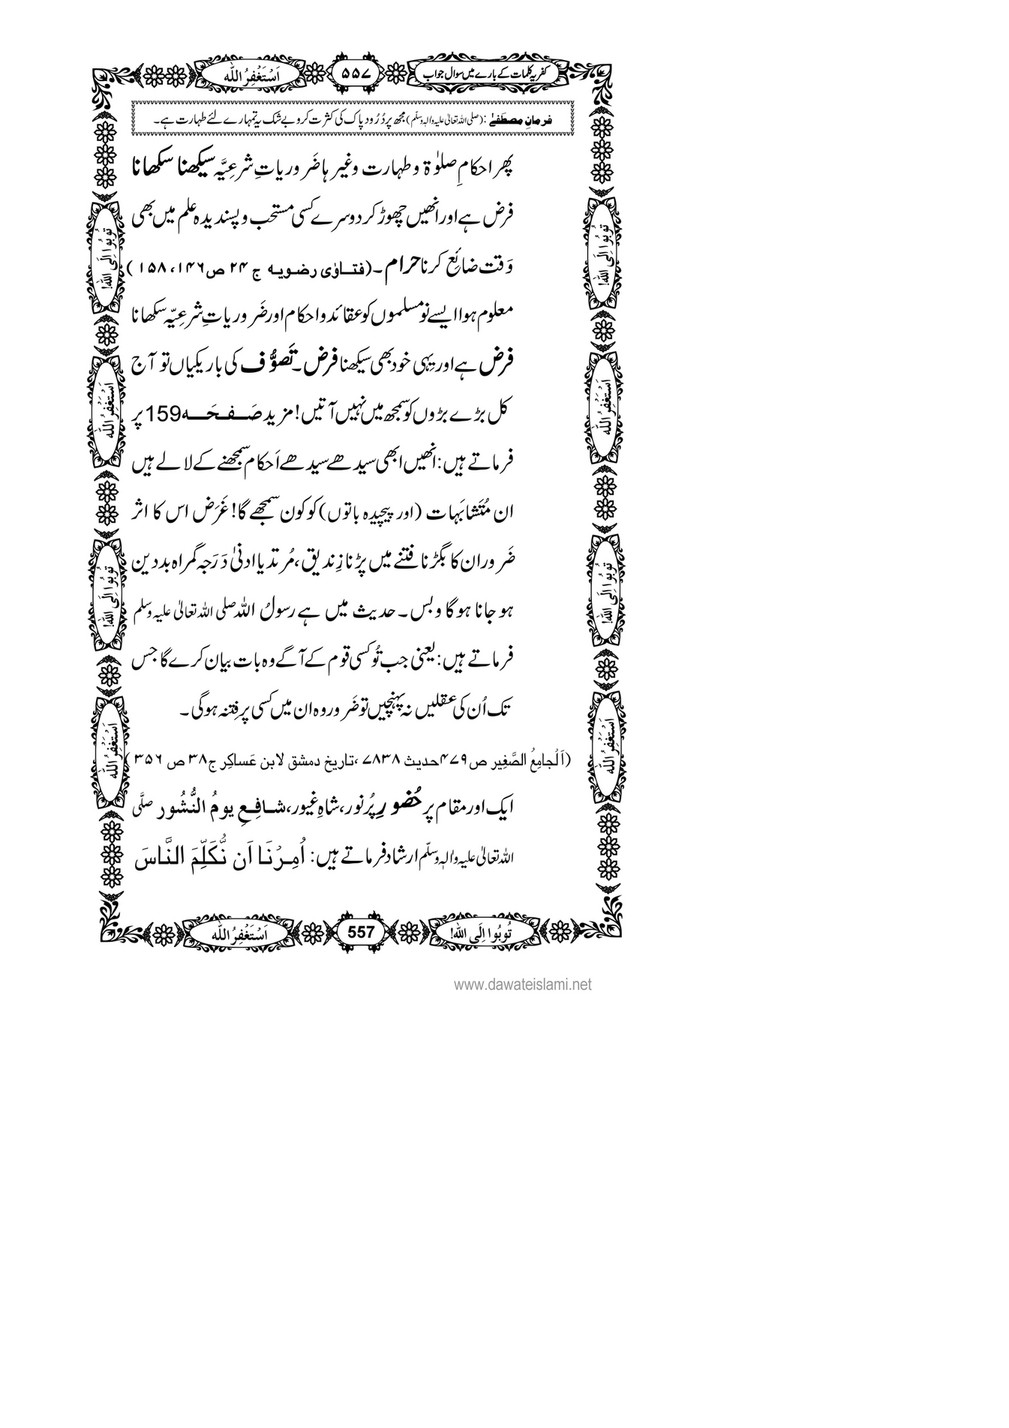 کفریہ کلمات کے بارے میں سوال جواب ۵۵۷ اَسْتَغْفِرُ اللّٰہ
فرمانِ مصطَفٰے :(صلی اللہ تعالیٰ علیہ والہ وسلّم) مجھ پر دُرُود پاک کی کثرت کرو بے شک یہ تمہارے لئے طہارت ہے۔
پھر احکامِ صلوٰۃ و طہارت وغیرہا ضَروریاتِ شرعِیَّہ سیکھنا سکھانا
فرض ہے اور انھیں چھوڑ کر دوسرے کسی مستحب و پسندیدہ علم میں بھی
وَقت ضائِع کرنا حرام ۔(فتاوٰی رضویہ ج ۲۴ ص۱۴۶، ۱۵۸ )
معلوم ہوا ایسے نو مسلموں کو عقائد و احکام اور ضَروریاتِ شرعِیّہ سکھانا
فرض ہے اور یہی خود بھی سیکھنا فرض۔ تَصوُّف کی باریکیاں تو آج
کل بڑے بڑوں کو سمجھ میں نہیں آتیں! مزید صَفحَہ159 پر
فرماتے ہیں: انھیں ابھی سیدھے سیدھے اَحکام سمجھنے کے لالے ہیں
ان مُتَشابَہات (اور پیچیدہ باتوں) کو کون سمجھے گا! غَرَض اس کا اثر
ضَرور ان کا بگڑنا فتنے میں پڑنا زِندیق ،مُرتد یا ادنیٰ دَرَجہ گمراہ بددین
ہوجانا ہوگا وبس۔ حدیث میں ہے رسولُ اللہ صلی اللہ تعالیٰ علیہ وسلم
فرماتے ہیں: یعنی جب تُو کسی قوم کے آگے وہ بات بیان کرے گا جس
تک اُن کی عقلیں نہ پہنچیں تو ضَرور وہ ان میں کسی پر فِتنہ ہوگی۔
(اَلجامِعُ الصَّغِیر ص۴۷۹حدیث ۷۸۳۸ ،تاریخ دمشق لابن عَساکِر ج۳۸ ص ۳۵۶)
ایک اور مقام پر حُضورِ پُرنور، شاہِ غیور، شافِعِ یومُ النُّشُور صلَّی
اللہ تعالیٰ علیہ والہٖ وسلّم ارشاد فرماتے ہیں: اُمِرْنَا اَن نُّکَلِّمَ النَّاسَ
تُوبُوا اِلَی اللہ! 557 اَسْتَغْفِرُ اللّٰہ
تُوبُوا اِلَی اللہ!
اَسْتَغْفِرُ اللّٰہ
تُوبُوا اِلَی اللہ!
اَسْتَغْفِرُ اللّٰہ
تُوبُوا اِلَی اللہ!
اَسْتَغْفِرُ اللّٰہ
تُوبُوا اِلَی اللہ!
اَسْتَغْفِرُ اللّٰہ
www.dawateislami.net